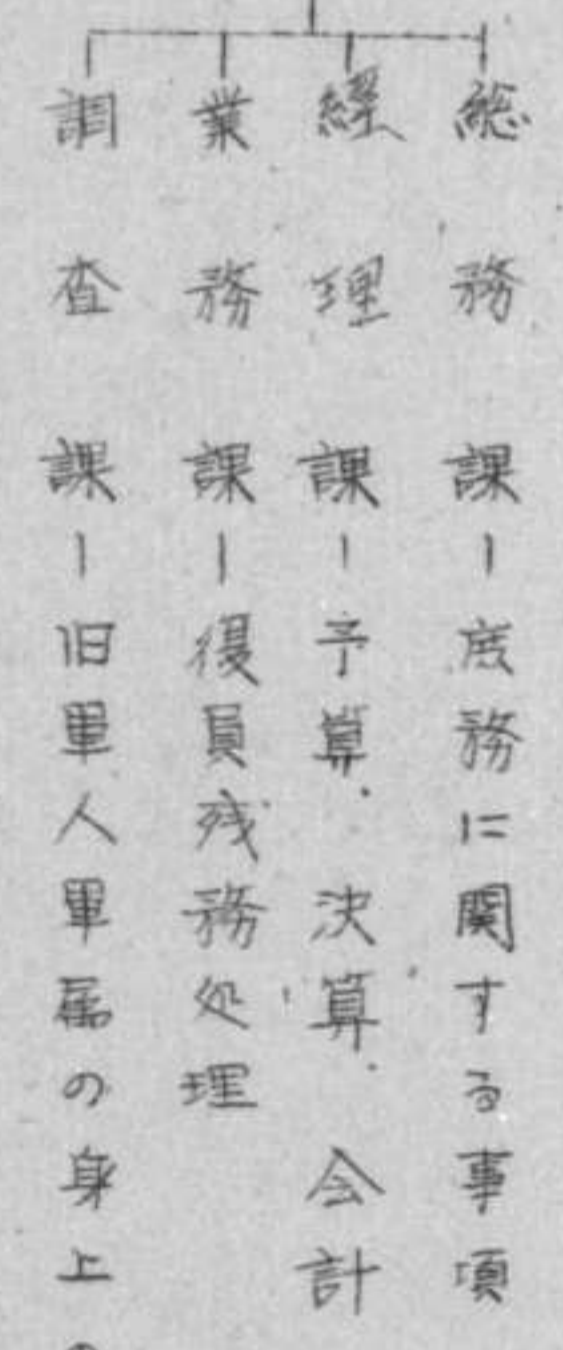 総務課ー庶務に関する事項
経理課ー予算.決算.会計
業務課ー復員残務処理
調査課ー旧軍人軍属の身上の